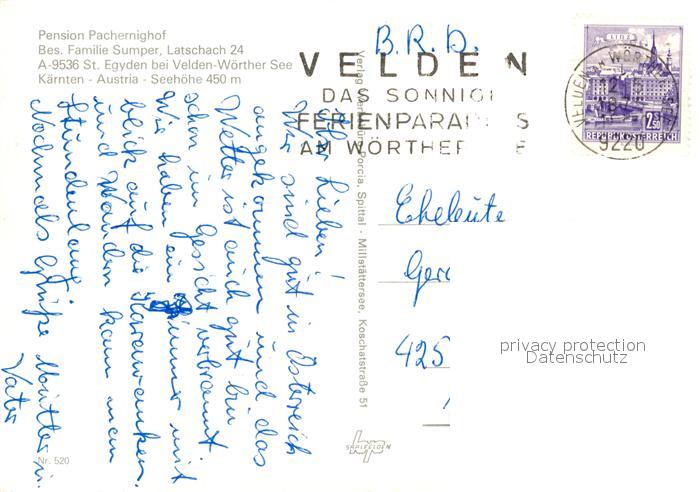 Pension Pachernighof
Bes. Familie Sumper, Latschach 24
A-9536 St. Egyden bei Velden-Wörther See
Kärnten - Austria - Seehöhe 450 m
B.R.D.
VELDEN
DAS SONNIG
FERIENPARA S
AM WÖRTHER E
LINZ
2.50
REPUBLIK ÖSTERREICH
VELDEN WÖRTH
9220
Lieben!
Wir sind gut in Österreich
angekommen und das
Wetter ist auch gut bin
schon im Gesicht verbrannt.
Wir haben ein Zimmer mit
blick auf die Karawanken.
und Wandern kann man
Stundenlang
Nochmals Grüße Mutter u.
Vater
Porcia, Spittal - Millstättersee, Koschatstraße 51
Eheleute
Ger
425
SAALFELDEN
Nr. 520
privacy protection
Datenschutz